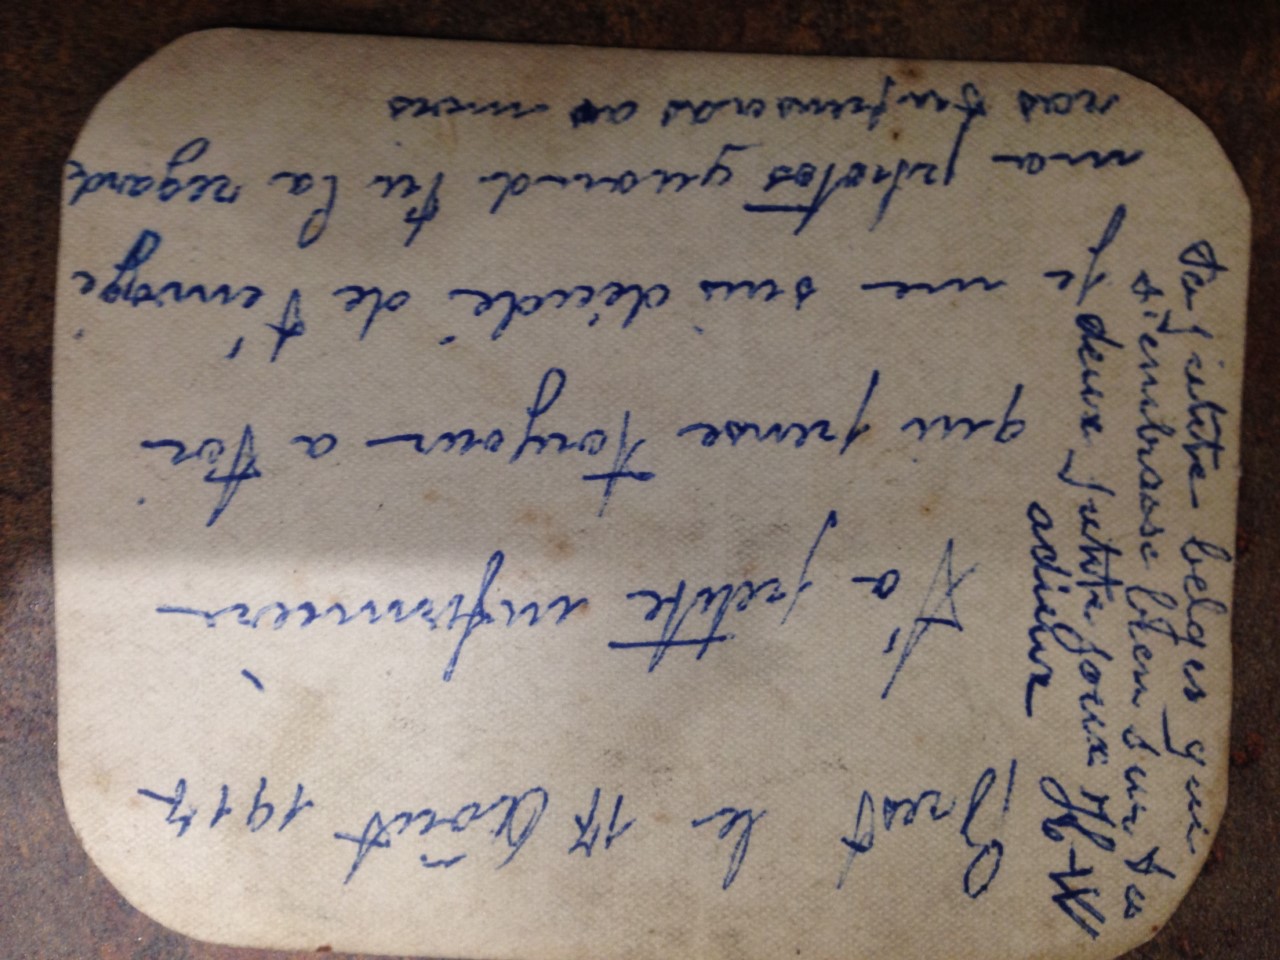 Brest le 17 Août 1917
Ta petite infirmière
qui pense toujour a toi
Je me suis décidé de t'envoyé
ma photos quand tu la regarde
ras tu penseras a moins
ta petite belges qui
t'embrasse bien sur ta
deux petite joux H-W
adieux